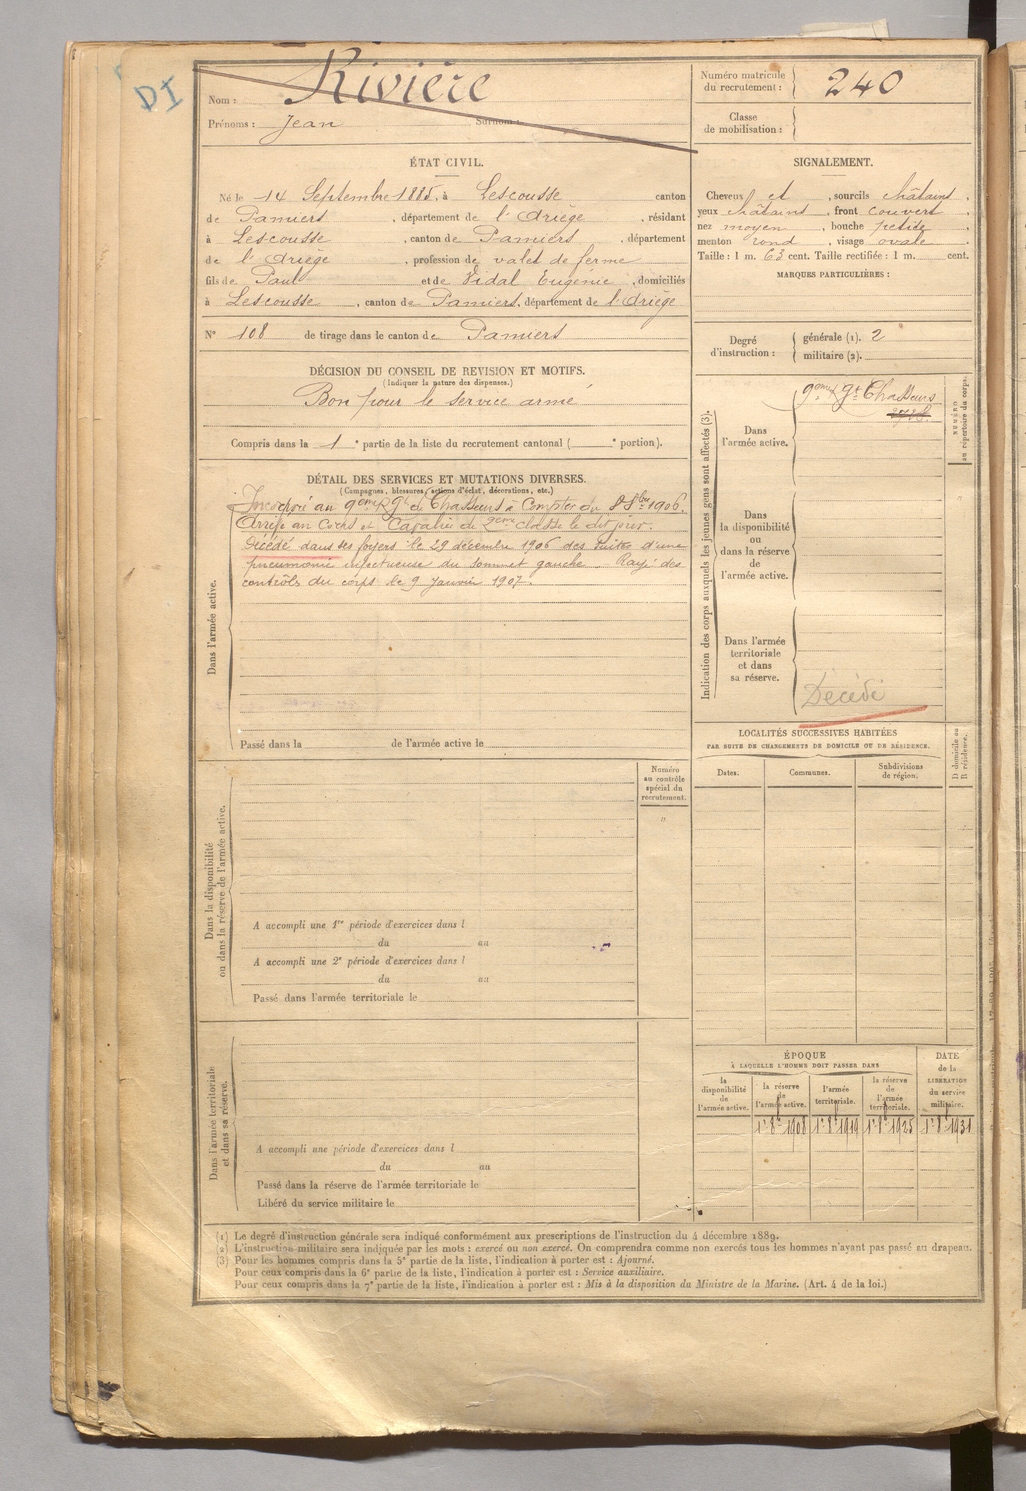 DI
Nom : Rivière
Prénoms : Jean Surnom :
Numéro matricule
du recrutement : 240
Classe
de mobilisation :
ÉTAT CIVIL.
Né le 14 Septembre 1885, à Lescousse canton
de Pamiers, département de l'Ariège, résidant
à Lescousse, canton de Pamiers, département
de l'Ariège, profession de valet de ferme
fils de Paul et de Vidal Eugénie, domiciliés
à Lescousse, canton de Pamiers, département de l'Ariège
N° 108 de tirage dans le canton de Pamiers
SIGNALEMENT.
Cheveux et, sourcils châtains,
yeux châtains, front couvert
nez moyen, bouche petite,
menton rond, visage ovale
Taille : 1 m. 63 cent. Taille rectifiée : 1 m. cent.
MARQUES PARTICULIÈRES :
Degré
d'instruction :
générale (1). 2
militaire (2).
DÉCISION DU CONSEIL DE REVISION ET MOTIFS.
(Indiquer la nature des dispenses.)
Bon pour le service armé
Compris dans la 1e partie de la liste du recrutement cantonal ( e portion).
DÉTAIL DES SERVICES ET MUTATIONS DIVERSES.
(Campagnes, blessures, actions d'éclat, décorations, etc.)
Incorporé au 9eme Rgt de Chasseurs à Compter du 8 8bre 1906.
Arrivé au Corps et Cavalier de 2eme classe le dit jour.
Décédé dans ses foyers le 29 décembre 1906 des suites d'une
pneumonie infectueuse du sommet gauche Rayé des
contrôles du corps le 9 Janvier 1907.
Dans l'armée active.
Passé dans la de l'armée active le
Indication des corps auxquels les jeunes gens sont affectés (3).
Dans
l'armée active.
9eme Rgt Chasseurs
Dans
la disponibilité
ou
dans la réserve
de
l'armée active.
Dans l'armée
territoriale
et dans
sa réserve.
Décédé
NUMÉRO
au répertoire du corps.
LOCALITÉS SUCCESSIVES HABITÉES
PAR SUITE DE CHANGEMENTS DE DOMICILE OU DE RÉSIDENCE.
Dates.
Communes.
Subdivisions
de région.
D domicile ou
R résidence.
Numéro
au contrôle
spécial du
recrutement.
"
Dans la disponibilité
ou dans la réserve de l'armée active.
A accompli une 1re période d'exercices dans l
du au
A accompli une 2e période d'exercices dans l
du au
Passé dans l'armée territoriale le
Dans l'armée territoriale
et dans sa réserve.
A accompli une période d'exercices dans l
du au
Passé dans la réserve de l'armée territoriale le
Libéré du service militaire le
ÉPOQUE
À LAQUELLE L'HOMME DOIT PASSER DANS
la
disponibilité
de
l'armée active.
la réserve
de
l'armée active.
l'armée
territoriale.
la réserve
de
l'armée
territoriale.
DATE
de la
LIBÉRATION
du service
militaire.
1er 8bre 1908 1er 8bre 1919 1er 8bre 1925 1er 8bre 1931
(1) Le degré d'instruction générale sera indiqué conformément aux prescriptions de l'instruction du 4 décembre 1889.
(2) L'instruction militaire sera indiquée par les mots : exercé ou non exercé. On comprendra comme non exercés tous les hommes n'ayant pas passé au drapeau.
(3) Pour les hommes compris dans la 5e partie de la liste, l'indication à porter est : Ajourné.
Pour ceux compris dans la 6e partie de la liste, l'indication à porter est : Service auxiliaire.
Pour ceux compris dans la 7e partie de la liste, l'indication à porter est : Mis à la disposition du Ministre de la Marine. (Art. 4 de la loi.)